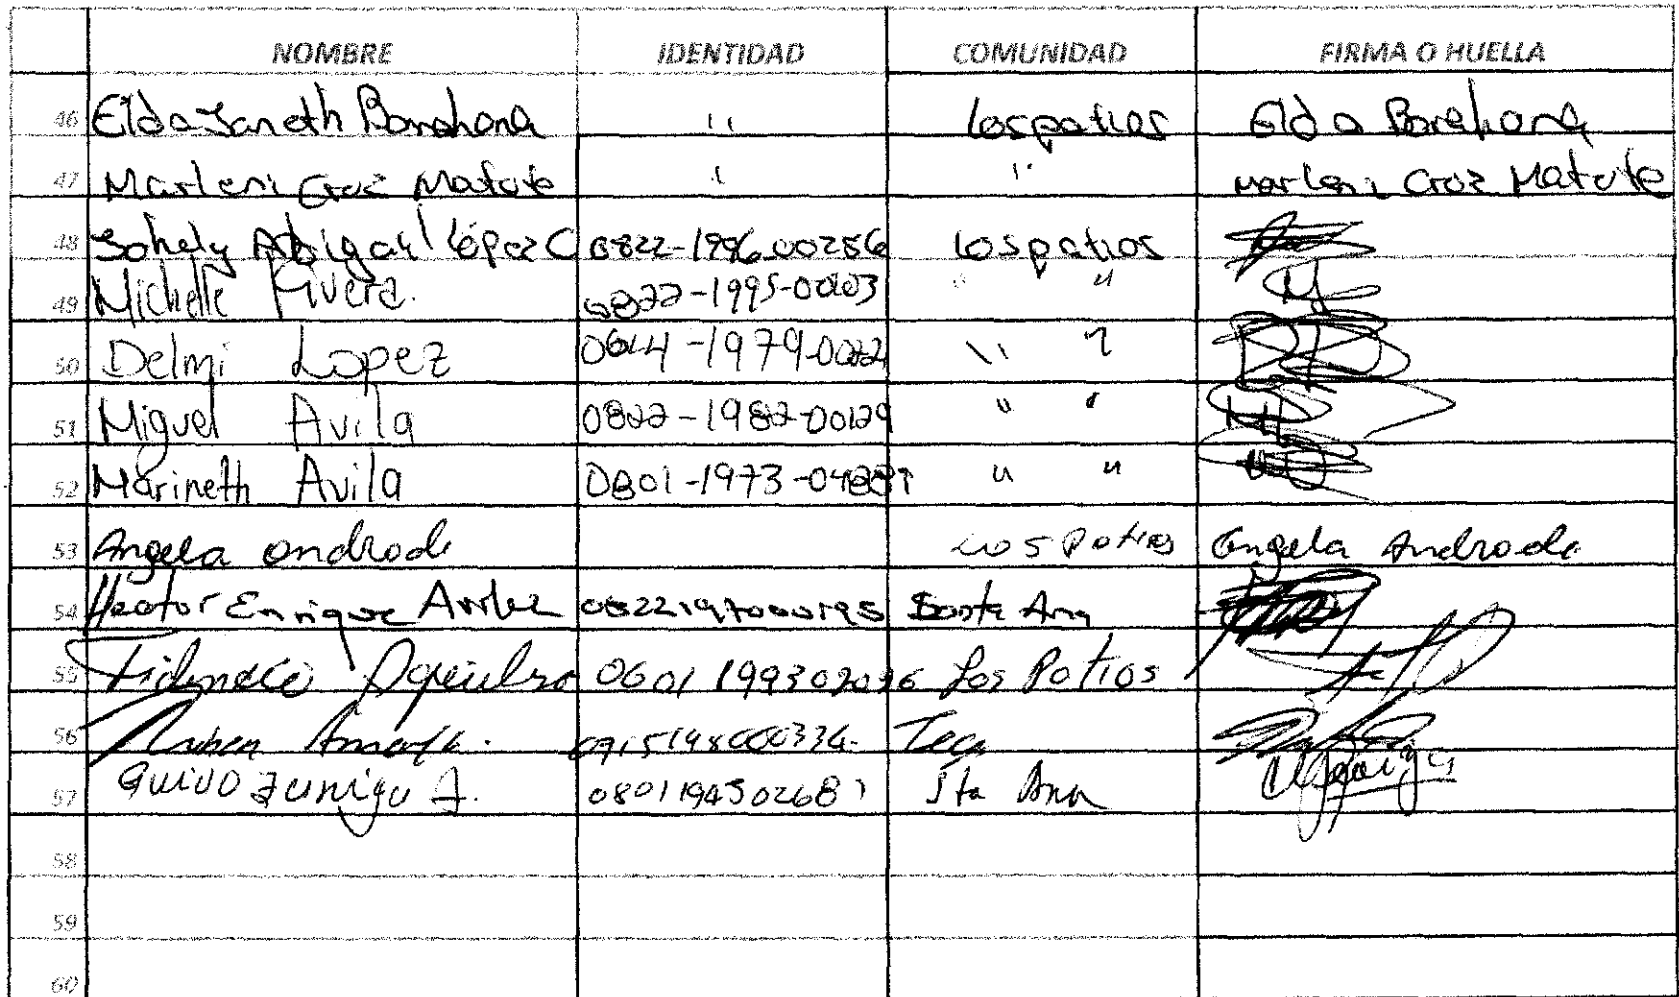 NOMBRE IDENTIDAD COMUNIDAD FIRMA O HUELLA
46 Elda Janeth Barahona " los patios Elda Barahona
47 Marleni Cruz Matute " " Marleni Cruz Matute
48 Sohely Abigail López C 0822-1996-00286 los patios
49 Michelle Rivera. 0822-1995-00103 " "
50 Delmi Lopez " "
51 Miguel Avila 0822-1982-00129 " "
52 Marineth Avila " "
53 Angela Andrade Los Patios Angela Andrade
54 Hector Enrique 0822197000195 Santa Ana
55 Los Patios
56 Ruben
57 Zuniga A. 0801194502681 Sta Ana
58
59
60